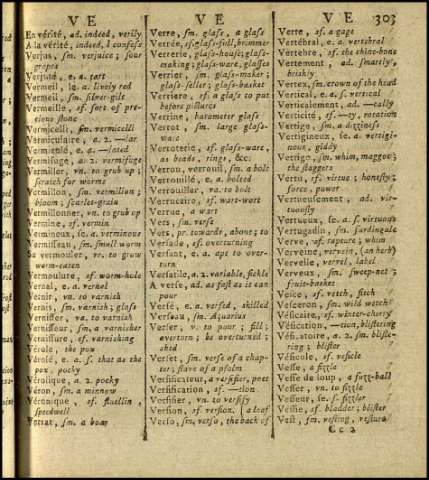 V E
V E
V E 303
En vérité, ad. indeed, verily
A la vérité, indeed, I confess
Verjus, sm. verjuice; sour
grape
Verjuté, e. a. tart
Vermeil, le. a. lively red
Vermeil, sm. silver-gilt
Vermeille, sf. sort of precious stone
Vermicelli, sm. vermicelli
Vermiculaire, a. 2. —lar
Vermiculé, e. a. —lated
Vermifuge, a. 2. vermifuge
Vermiller, vn. to grub up;
scratch for worms
Vermillon, sm. vermilion;
bloom; scarlet-grain
Vermillonner, vn. to grub up
Vermine, sf. vermin
Vermineux, se. a. verminous
Vermisseau, sm. small worm
Se vermouler, vr. to grow
worm-eaten
Vermoulure, sf. worm-hole
Vernal, e. a. vernal
Vernir, va. to varnish
Vernis, sm. varnish; glass
Vernisser, va. to varnish
Vernisseur, sm. a varnisher
Vernissure, sf. varnishing
Vérole, the pox
Vérolé, e. a. s. that as the
pox, pocky
Vérolique, a. 2. pocky
Véron, sm. a minnow
Véronique, sf. fluellin,
speedwell
Verrat, sm. a boar
Verre, sm. glass, a glass
Verrée, sf. glass-full, brimmer
Verrerie, glass-house; glass-
making; glass-ware, glasses
Verrier, sm. glass-maker;
glass-seller; glass-basket
Verriere, sf. a glass to put
before pictures
Verrine, barometer glass
Verrot, sm. large glass-
ware
Verroterie, sf. glass-ware,
as beads, rings, &c.
Verrou, verrouil, sm. a bolt
Verrouillé, e. a. bolted
Verrouiller, va. to bolt
Verrucaire, sf. wart-wort
Verrue, a wart
Vers, sm. verse
Vers, pr. towards, about; to
Versade, sf. overturning
Versant, e. a. apt to over-
turn
Versatile, a. 2. variable, fickle
A verse, ad. as fast as it can
pour
Versé, e. a. versed, skilled
Verseau, sm. Aquarius
Verser, v. to pour; fill;
overturn; be overturned;
shed
Verset, sm. verse of a chap-
ter; stave of a psalm
Versificateur, a versifier, poet
Versification, sf. —tion
Versifier, vn. to versify
Version, sf version. [a leaf
Verso, sm. verso, the back of
Verte, sf. a gage
Vertébral, e. a. vertebral
Vertebre, sf. the chine-bone
Vertement, ad. smartly,
briskly
Vertex, sm. crown of the head
Vertical, e. a. s. vertical
Verticalement, ad. —cally
Verticité, sf. —ty, rotation
Vertige, sm. a dizziness
Vertigineux, se. a. vertigi-
nous, giddy
Vertigo, sm. whim, maggot;
the staggers
Vertu, sf. virtue; honesty;
force, power
Vertueusement, ad. vir-
tuously
Vertueux, se. a. s. virtuous
Vertugadin, sm. fardingale
Verve, sf. rapture; whim
Verveine, vervein, (an herb)
Vervelle, vervel, label
Verveux, sm. sweep-net;
fruit-basket
Vesce, sf. vetch, fitch
Vesceron, sm. wild vetch
Vésicaire, sf. winter-cherry
Vésication, —tion, blistering
Vésicatoire, a. 2. sm. bliste-
ring; blister
Vésicule, sf. vesicle
Vesse, a fizzle
Vesse de loup, a fuzz-ball
Vesser, vn. to fizzle
Vesseur, se. s. fizzler
Vessie, sf. bladder; blister
Vest, sm. vesting, vesture
C c 2